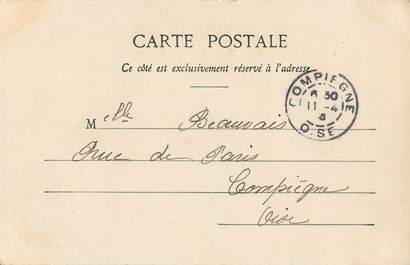 CARTE POSTALE
Ce côté est exclusivement réservé à l'adresse
COMPIEGNE
6 30
11 -4
OISE
Melle Beauvais
Rue de Paris
Compiègne
Oise